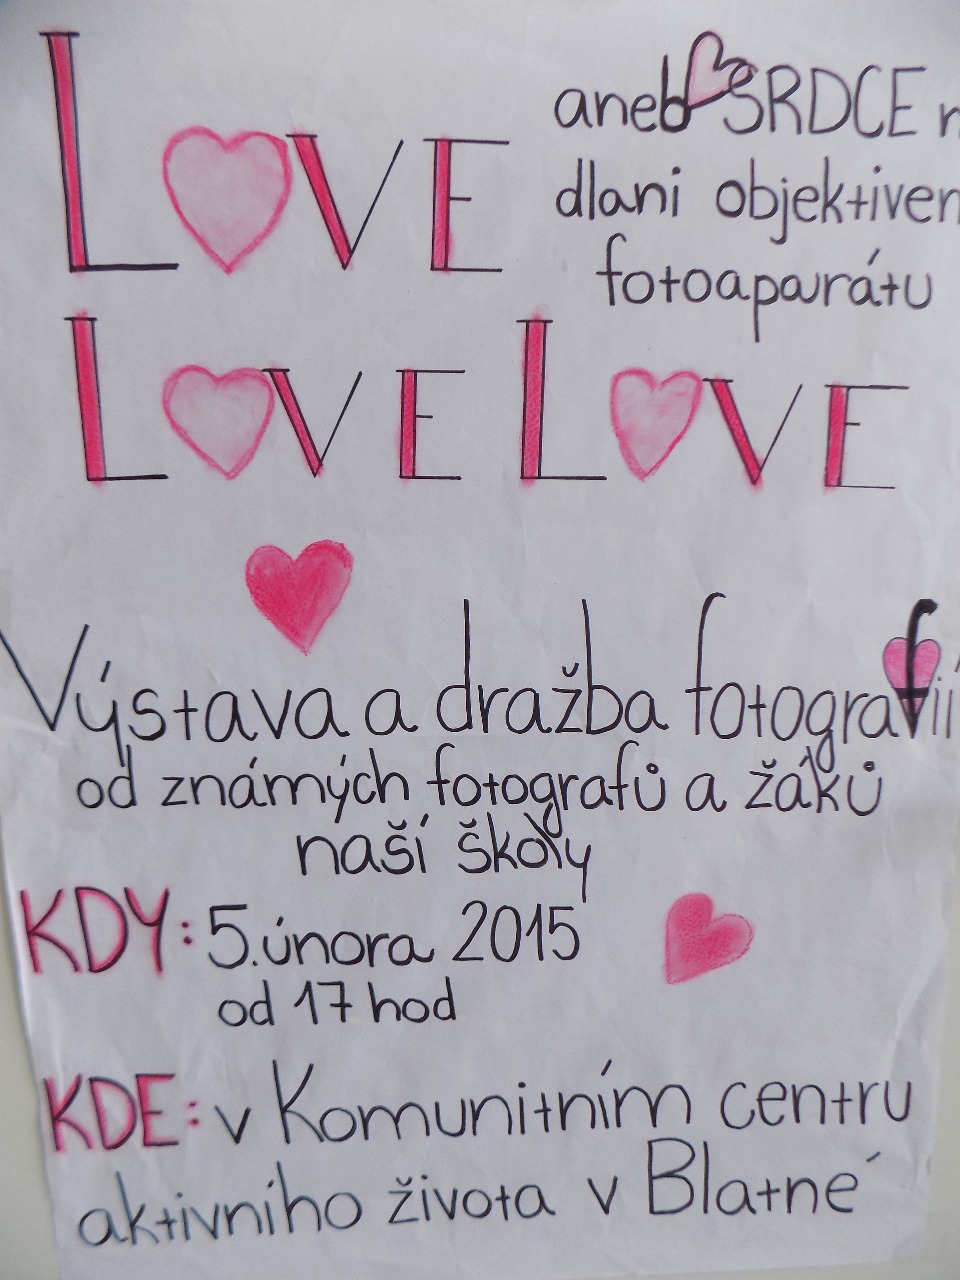 LOVE
aneb SRDCE n
dlani objektivem
fotoaparátu
LOVE LOVE
Výstava a dražba fotografií
od známých fotografů a žáků
naší školy
KDY: 5. února 2015
od 17 hod
KDE: v Komunitním centru
aktivního života v Blatné